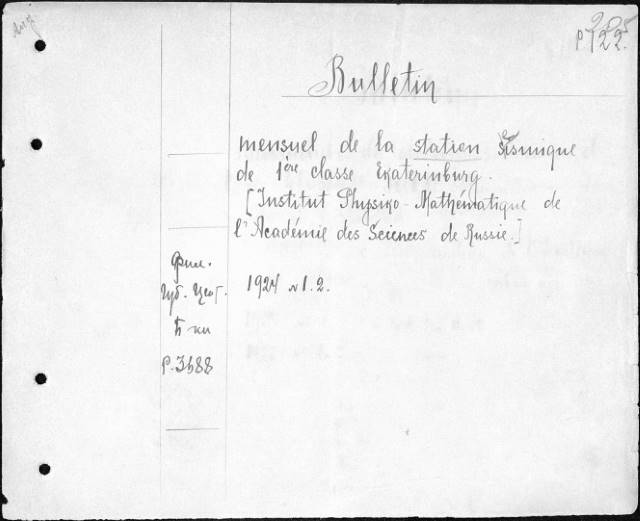 Р 722.
Bulletin
mensuel de la station sismique
de 1ère classe Ekaterinburg.
[Institut Physiko-Mathématique de
l'Académie des Sciences de Russie.]
1924 N 1.2.
Физ.
Р-3688